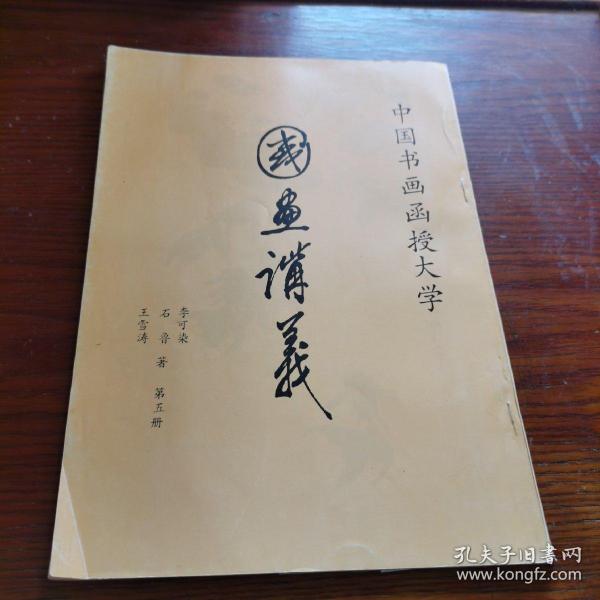 中国书画函授大学
國画講義
李可染
石鲁 著
王雪涛
第五册
孔夫子旧書网
www.kongfz.com